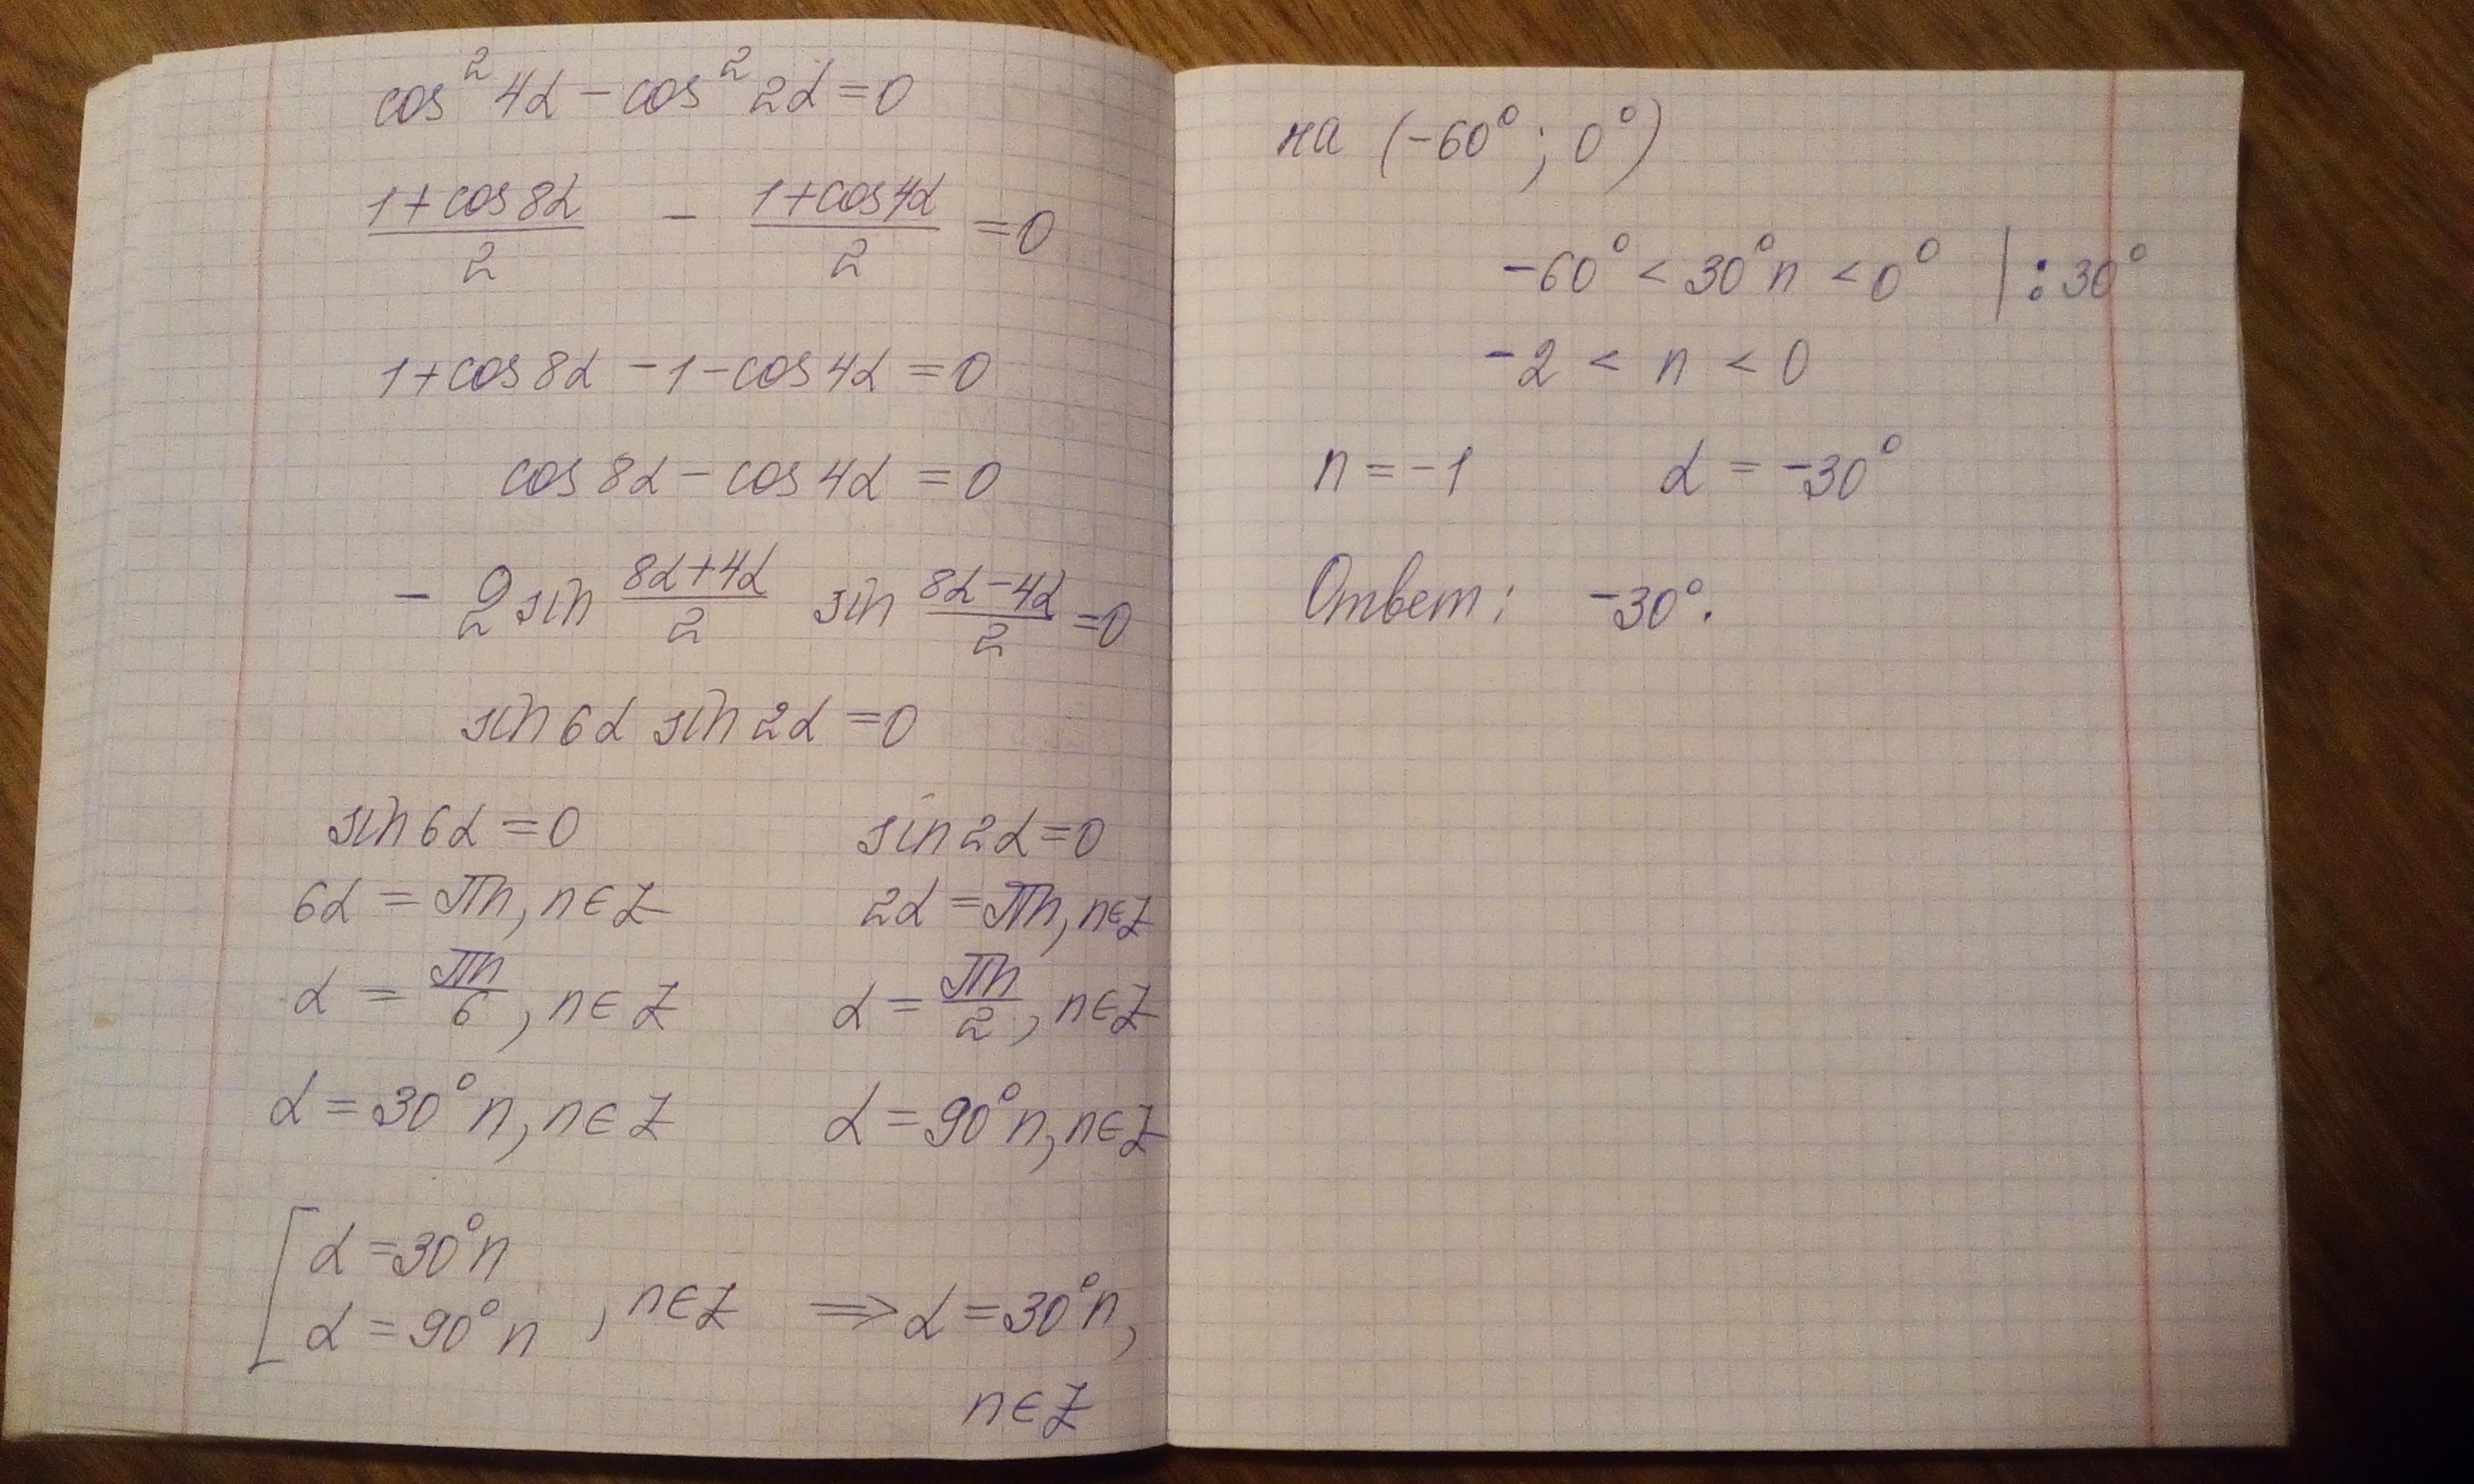 cos² 4α − cos² 2α = 0
(1 + cos 8α)/2 − (1 + cos 4α)/2 = 0
1 + cos 8α − 1 − cos 4α = 0
cos 8α − cos 4α = 0
− 2 sin (8α + 4α)/2 sin (8α − 4α)/2 = 0
sin 6α sin 2α = 0
sin 6α = 0 sin 2α = 0
6α = πn, n ∈ Z 2α = πn, n ∈ Z
α = πn/6, n ∈ Z α = πn/2, n ∈ Z
α = 30° n, n ∈ Z α = 90° n, n ∈ Z
[ α = 30° n
α = 90° n , n ∈ Z ⇒ α = 30° n,
n ∈ Z
на (−60° ; 0°)
−60° < 30° n < 0° | : 30°
−2 < n < 0
n = −1 α = −30°
Ответ: −30°.